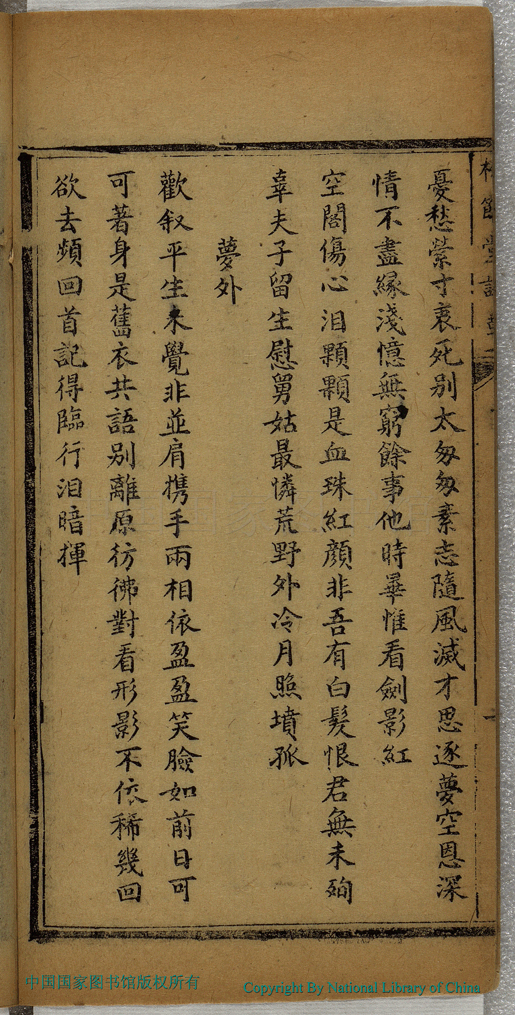 柏節堂詩
憂愁縈寸衷死別太匆匆素志隨風滅才思逐夢空恩深
情不盡緣淺憶無窮餘事他時畢惟看劍影紅
空閣傷心泪顆顆是血珠紅顔非吾有白髮恨君無未殉
辜夫子留生慰舅姑最憐荒野外冷月照墳孤
夢外
歡叙平生未覺非並肩携手兩相依盈盈笑臉如前日可
可著身是舊衣共語別離原彷彿對看形影不依稀幾回
欲去頻回首記得臨行泪暗揮
中国国家图书馆版权所有
Copyright By National Library of China